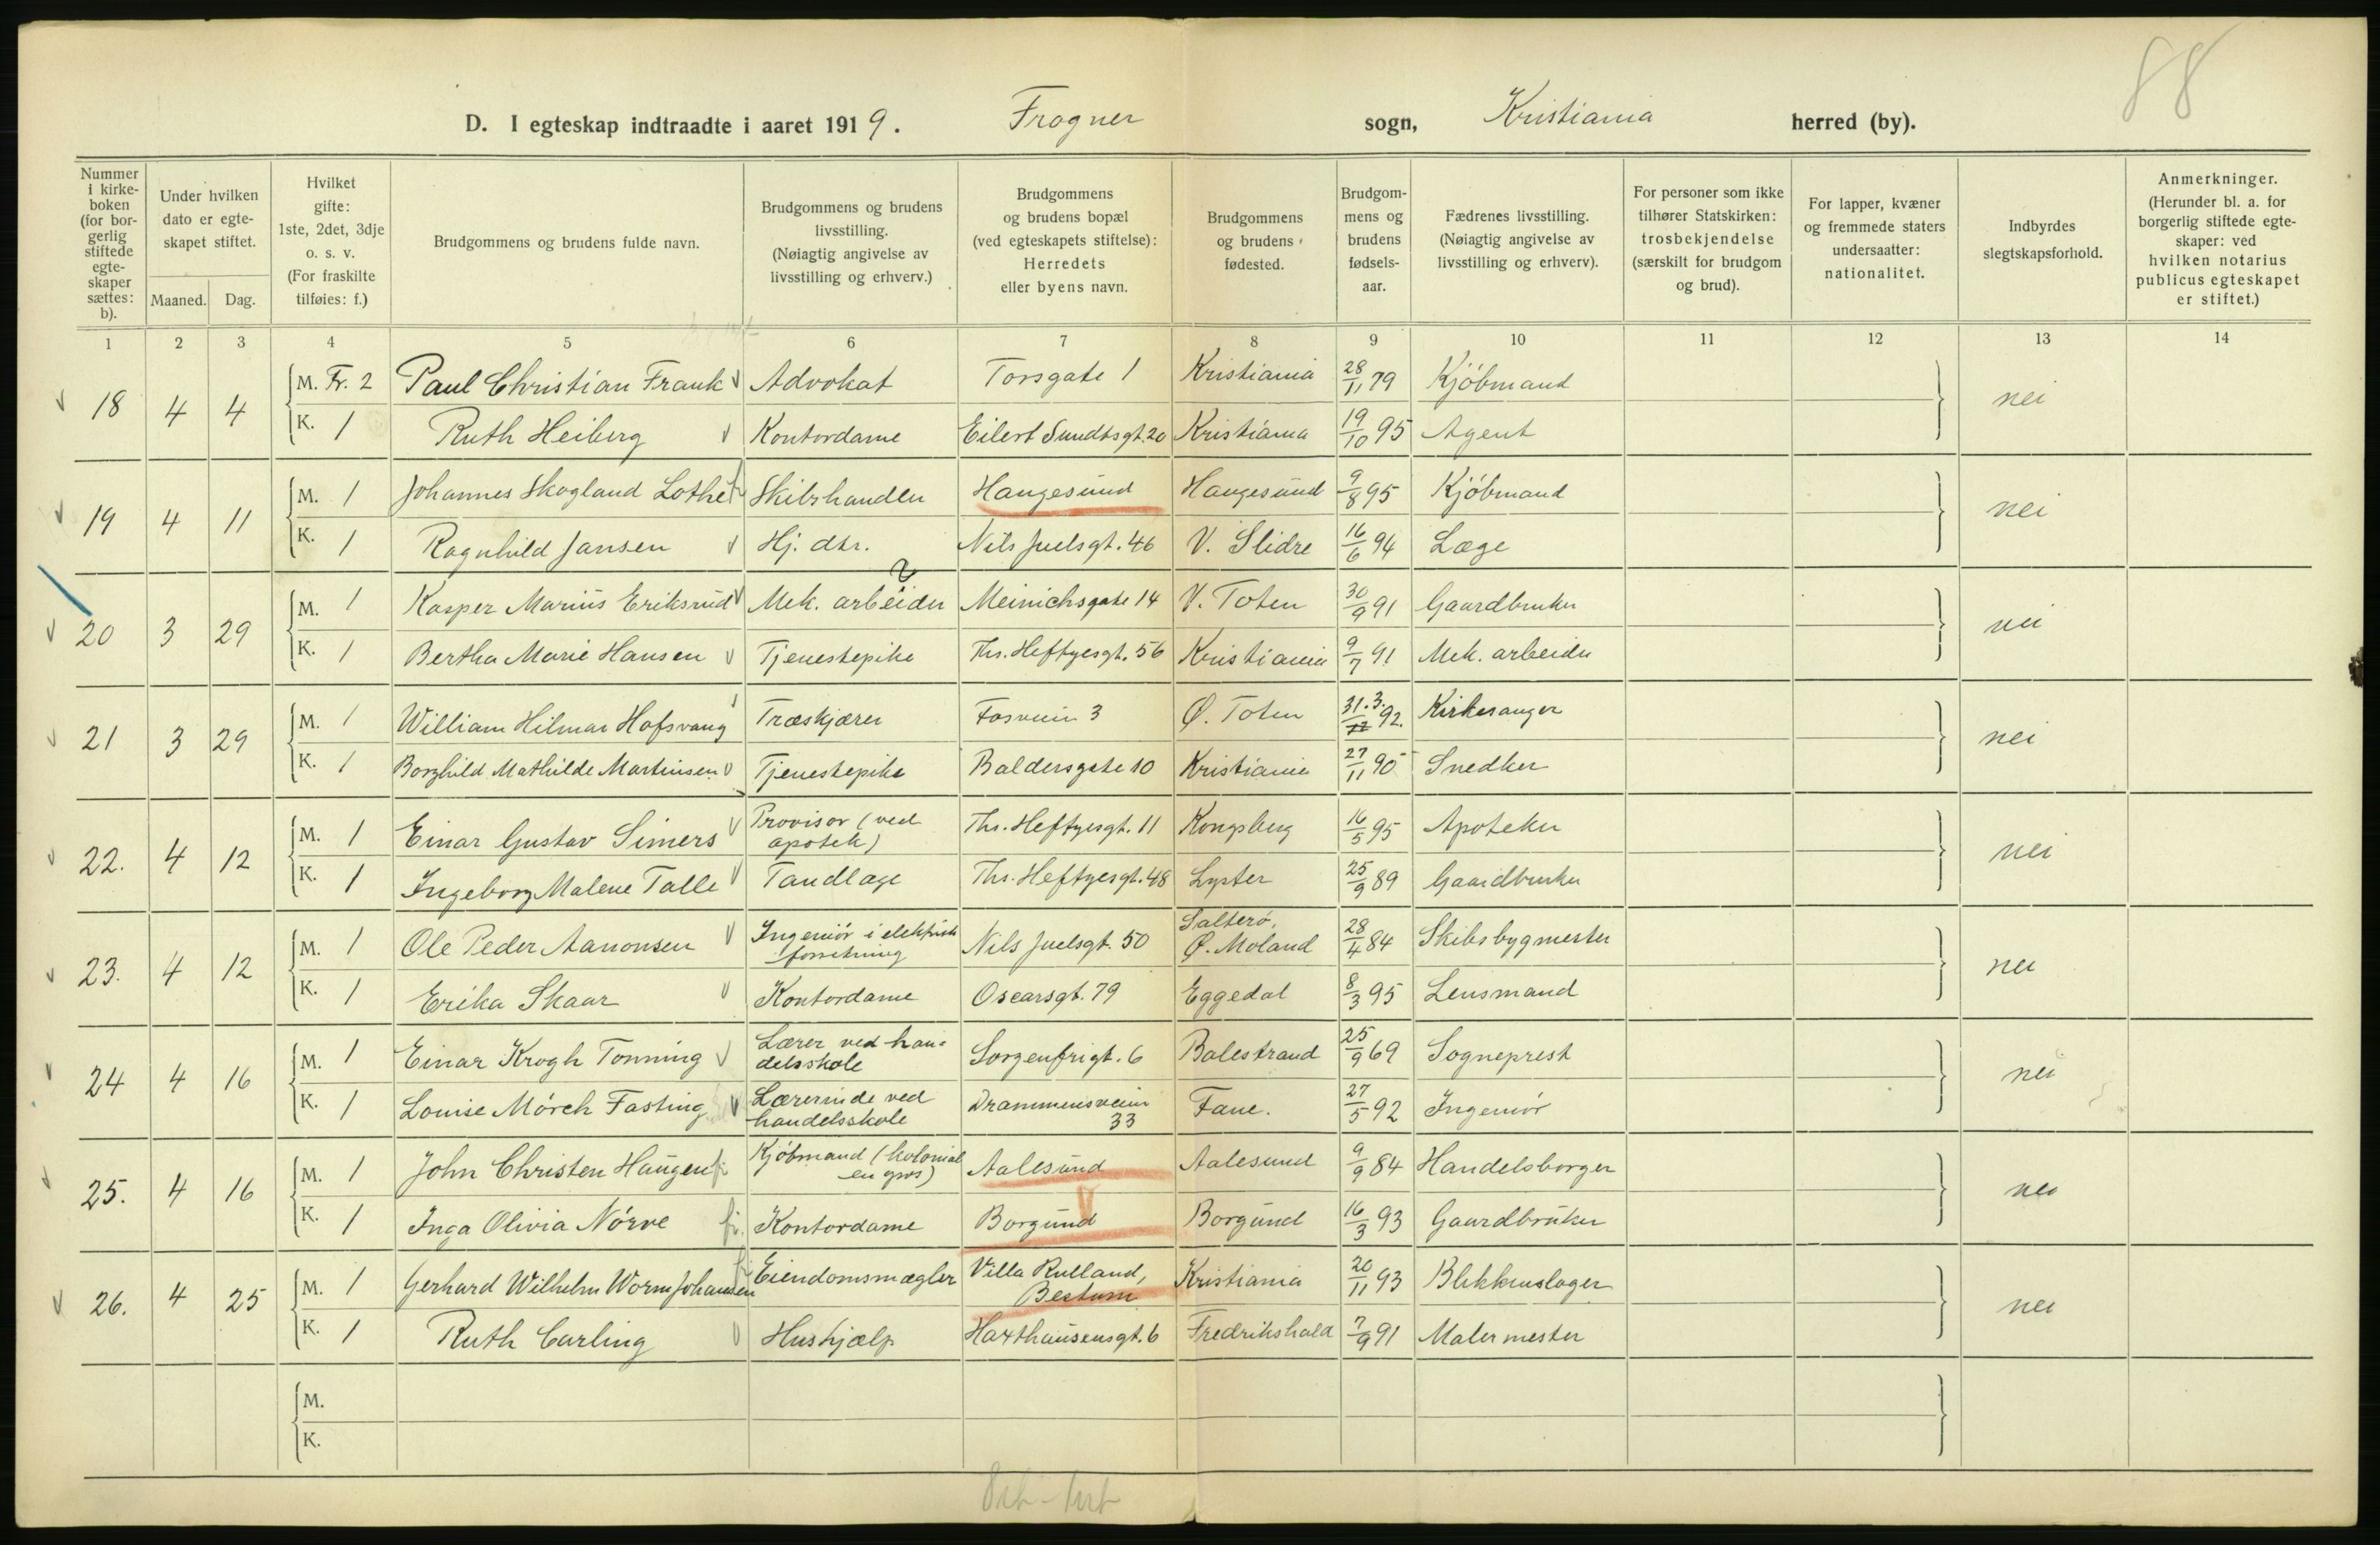 88
D. I egteskap indtraadte i aaret 1919. Frogner sogn, Kristiania herred (by).
Nummer i kirke-boken (for bor-gerlig stiftede egte-skaper sættes: b).
Under hvilken dato er egte-skapet stiftet.
Maaned. Dag.
Hvilket gifte: 1ste, 2det, 3dje o. s. v. (For fraskilte tilføies: f.)
Brudgommens og brudens fulde navn.
Brudgommens og brudens livsstilling. (Nøiagtig angivelse av livsstilling og erhverv.)
Brudgommens og brudens bopæl (ved egteskapets stiftelse): Herredets eller byens navn.
Brudgommens og brudens fødested.
Brudgom-mens og brudens fødsels-aar.
Fædrenes livsstilling. (Nøiagtig angivelse av livsstilling og erhverv).
For personer som ikke tilhører Statskirken: trosbekjendelse (særskilt for brudgom og brud).
For lapper, kvæner og fremmede staters undersaatter: nationalitet.
Indbyrdes slegtskapsforhold.
Anmerkninger. (Herunder bl. a. for borgerlig stiftede egte-skaper: ved hvilken notarius publicus egteskapet er stiftet.)
1 2 3 4 5 6 7 8 9 10 11 12 13 14
18 4 4 M. Fr. 2 Paul Christian Frank Advokat Torsgate 1 Kristiania 28/11 79 Kjöbmand nei
K. 1 Ruth Heiberg Kontordame Eilert Sundtsgt. 20 Kristiania 19/10 95 Agent
19 4 11 M. 1 Johannes Skogland Lothe Skibshandler Haugesund Haugesund 9/8 95 Kjöbmand nei
K. 1 Ragnhild Jansen Hj. dtr. Nils Juelsgt. 46 V. Slidre 16/6 94 Læge
20 3 29 M. 1 Kasper Marius Eriksrud Mek. arbeider Meinichsgate 14 V. Toten 30/9 91 Gaardbruker nei
K. 1 Bertha Marie Hansen Tjenestepike Ths. Heftyesgt. 56 Kristiania 9/7 91 Mek. arbeider
21 3 29 M. 1 William Hilmar Hofsvang Træskjærer Fosveien 3 Ø. Toten 31.3. 92. Kirkesanger nei
K. 1 Borghild Mathilde Martinsen Tjenestepike Baldersgate 10 Kristiania 27/11 90 Snedker
22. 4 12 M. 1 Einar Gustav Simers Provisor (ved apotek) Ths. Heftyesgt. 11 Kongsberg 16/5 95 Apoteker nei
K. 1 Ingeborg Malene Talle Tandlæge Ths. Heftyesgt. 48 Lyster 25/9 89 Gaardbruker
23. 4 12 M. 1 Ole Peder Aanonsen Ingeniör i elektrisk forretning Nils Juelsgt. 50 Salterö, Ø. Moland 28/4 84 Skibsbygmester nei
K. 1 Erika Skaar Kontordame Oscarsgt. 79 Eggedal 8/3 95 Lensmand
24 4 16 M. 1 Einar Krogh Tonning Lærer ved han-delsskole Sorgenfrigt. 6 Balestrand 25/9 69 Sogneprest nei
K. 1 Louise Mörch Fasting Lærerinde ved handelsskole Drammensveien 33 Fane. 27/5 92 Ingeniör
25. 4 16 M. 1 John Christen Haugen Kjöbmand (kolonial en gros) Aalesund Aalesund 9/9 84 Handelsborger nei
K. 1 Inga Olivia Nörve Kontordame Borgund Borgund 16/3 93 Gaardbruker
26. 4 25 M. 1 Gerhard Wilhelm Worm Johansen Eiendomsmægler Villa Rulland, Bestum Kristiania 20/11 93 Blikkenslager nei
K. 1 Ruth Carling Hushjælp Haxthausensgt. 6 Fredrikshald 7/9 91 Malermester
M.
K.